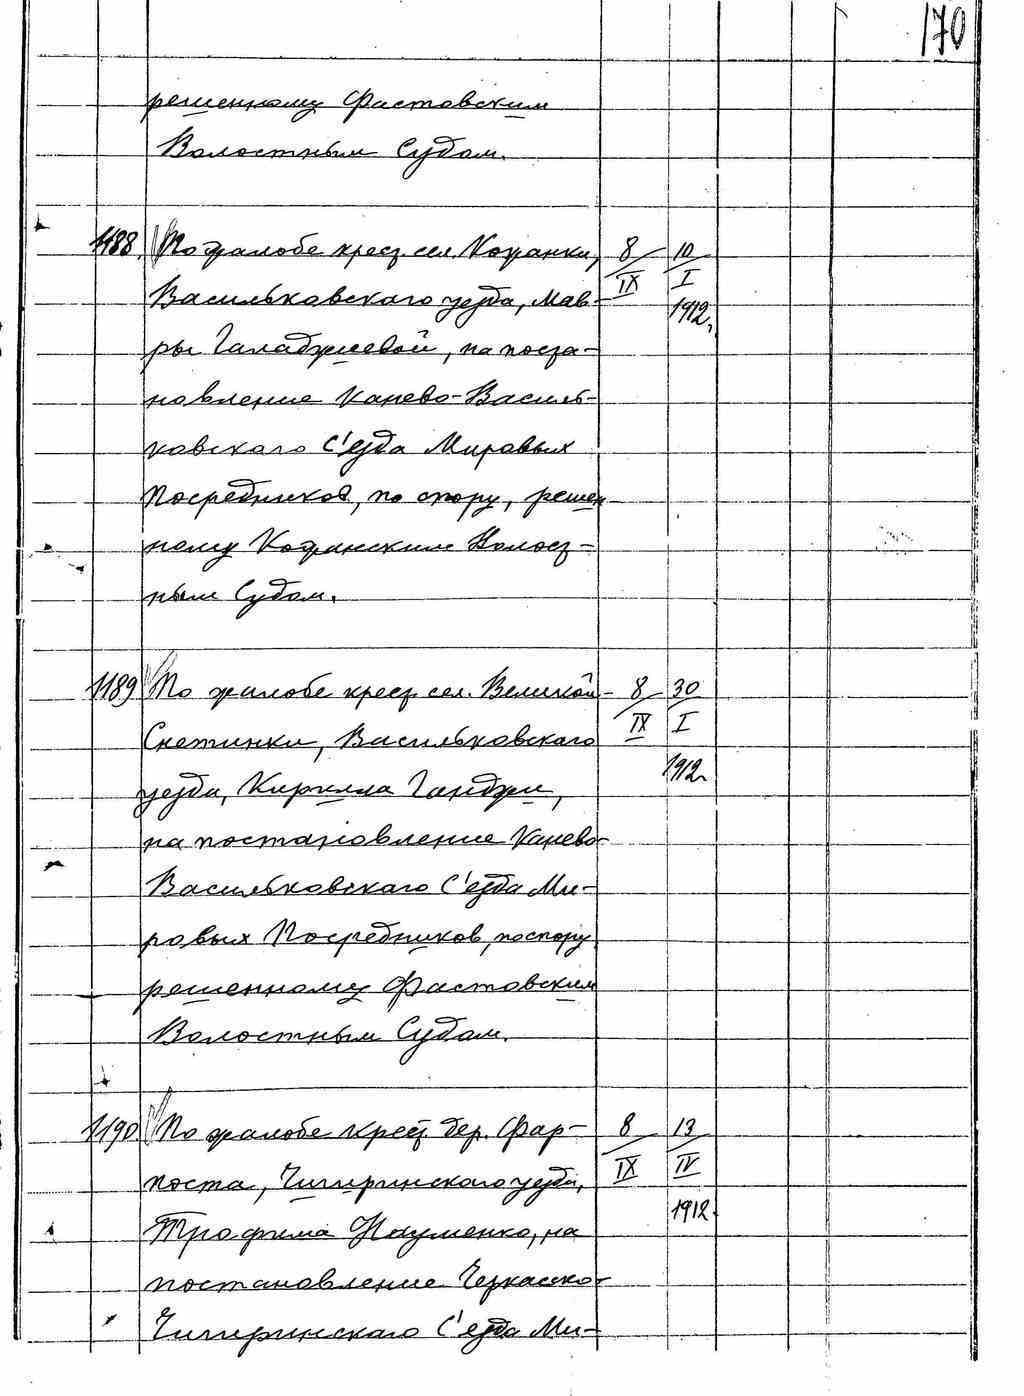 170
решенному Фастовским
Волостным Судом.
1188. По жалобе крест. сел. Кожанки, 8/IX 10/I 1912.
Васильковского уезда, Мав-
ры Галаджиевой, на поста-
новление Канево-Василь-
ковского С'езда Мировых
Посредников, по спору, решен
ному Кожанским Волост-
ным Судом.
1189 По жалобе крест. сел. Великой- 8/IX 30/I 1912.
Снетинки, Васильковского
уезда, Кирилла Ганджи,
на постановление Канево-
Васильковского С'езда Ми-
ровых Посредников, по спору
решенному Фастовским
Волостным Судом.
1190 По жалобе крест. дер. Фар- 8/IX 13/IV 1912.
поста, Чигиринского уезда,
Трофима Науменко, на
постановление Черкасско-
Чигиринского С'езда Ми-